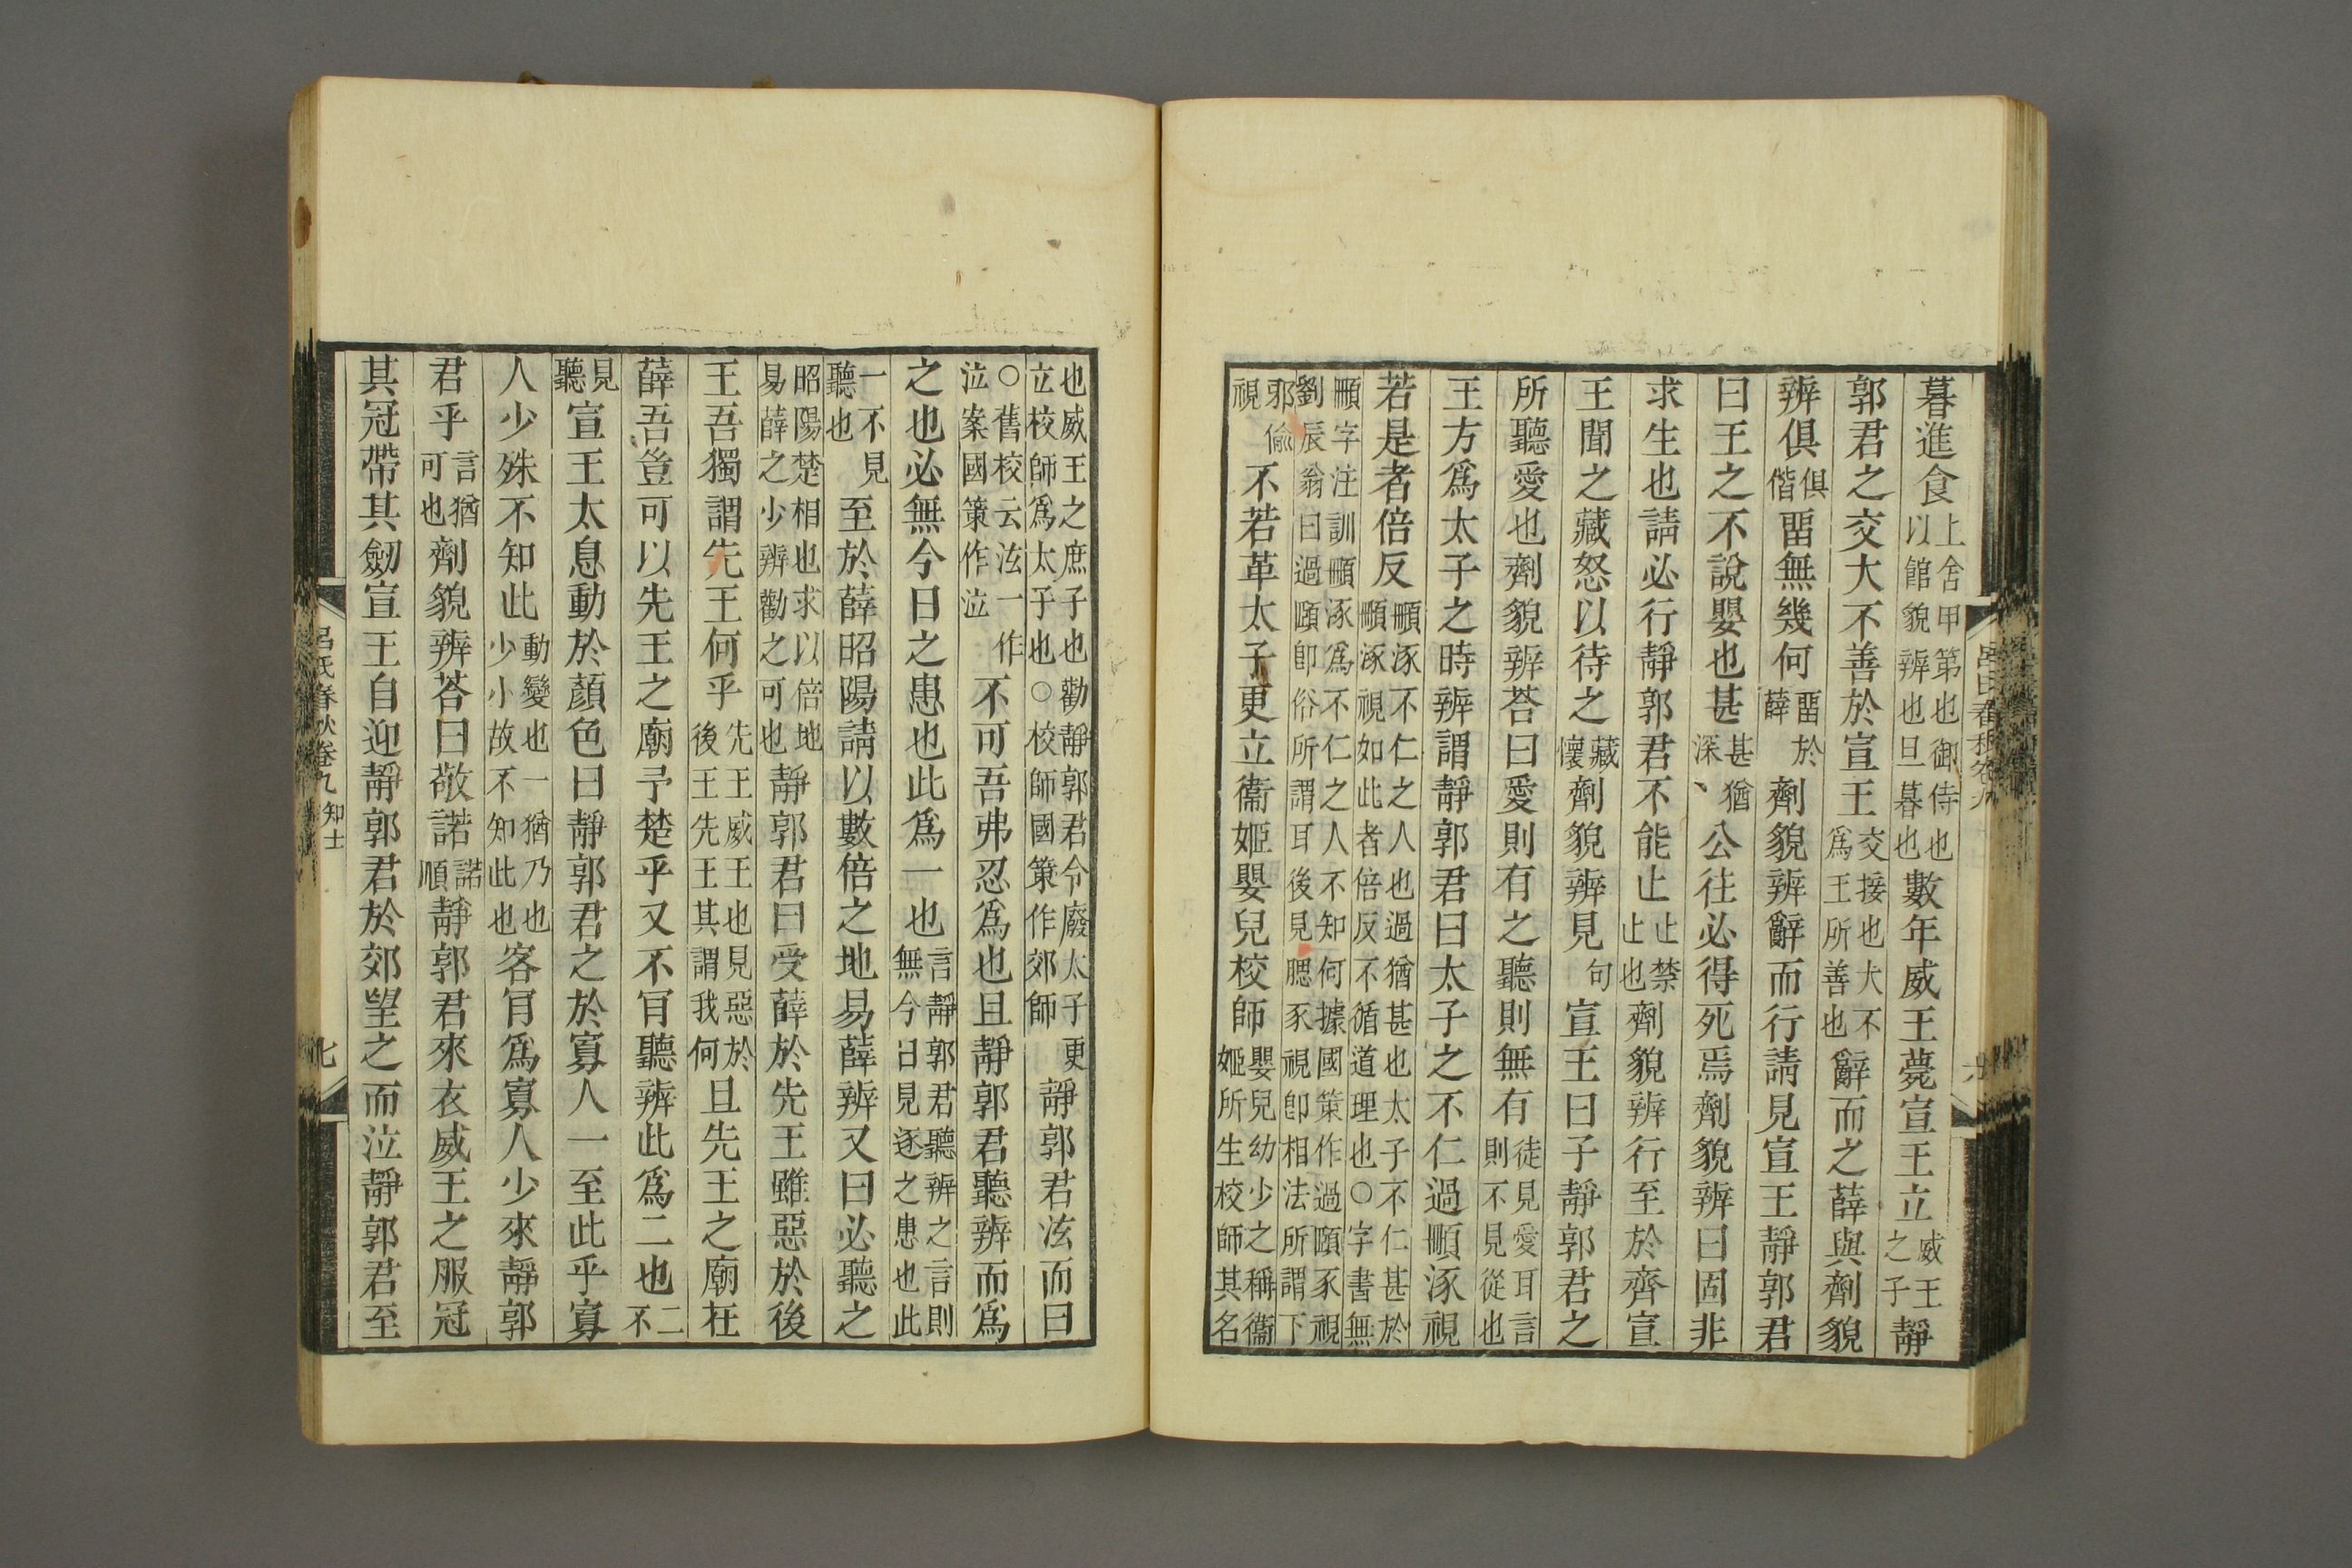 暮進食上舍甲第也御侍也以館貌辨也旦暮也數年威王薨宣王立威王之子靜
郭君之交大不善於宣王交接也大不爲王所善也辭而之薛與劑貌
辨俱俱偕留無幾何留於薛劑貌辨辭而行請見宣王靜郭君
曰王之不說嬰也甚甚猶深公往必得死焉劑貌辨曰固非
求生也請必行靜郭君不能止止禁止也劑貌辨行至於齊宣
王聞之藏怒以待之藏懷劑貌辨見句宣王曰子靜郭君之
所聽愛也劑貌辨荅曰愛則有之聽則無有徒見愛耳言則不見從也
王方爲太子之時辨謂靜郭君曰太子之不仁過𩒺涿視
若是者倍反𩒺涿不仁之人也過猶甚也太子不仁甚於𩒺涿視如此者倍反不循道理也○字書無
𩒺字注訓𩒺涿爲不仁之人不知何據國策作過頤豕視劉辰翁曰過頤卽俗所謂耳後見腮豕視卽相法所謂下
邪偸視不若革太子更立衞姬嬰兒校師嬰兒幼少之稱衞姬所生校師其名
呂氏春秋卷九
六
也威王之庶子也勸靜郭君令廢太子更立校師爲太子也○校師國策作郊師靜郭君泫而曰
○舊校云泫一作泣案國策作泣不可吾弗忍爲也且靜郭君聽辨而爲
之也必無今日之患也此爲一也言靜郭君聽辨之言則無今日見逐之患也此
一不見聽也至於薛昭陽請以數倍之地易薛辨又曰必聽之
昭陽楚相也求以倍地易薛之少辨勸之可也靜郭君曰受薛於先王雖惡於後
王吾獨謂先王何乎先王威王也見惡於後王先王其謂我何且先王之廟在
薛吾豈可以先王之廟予楚乎又不肎聽辨此爲二也二不
見聽宣王太息動於顏色曰靜郭君之於寡人一至此乎寡
人少殊不知此動變也一猶乃也少小故不知此也客肎爲寡人少來靜郭
君乎言猶可也劑貌辨荅曰敬諾諾順靜郭君來衣威王之服冠
其冠帶其劒宣王自迎靜郭君於郊望之而泣靜郭君至
呂氏春秋卷九 知士
七